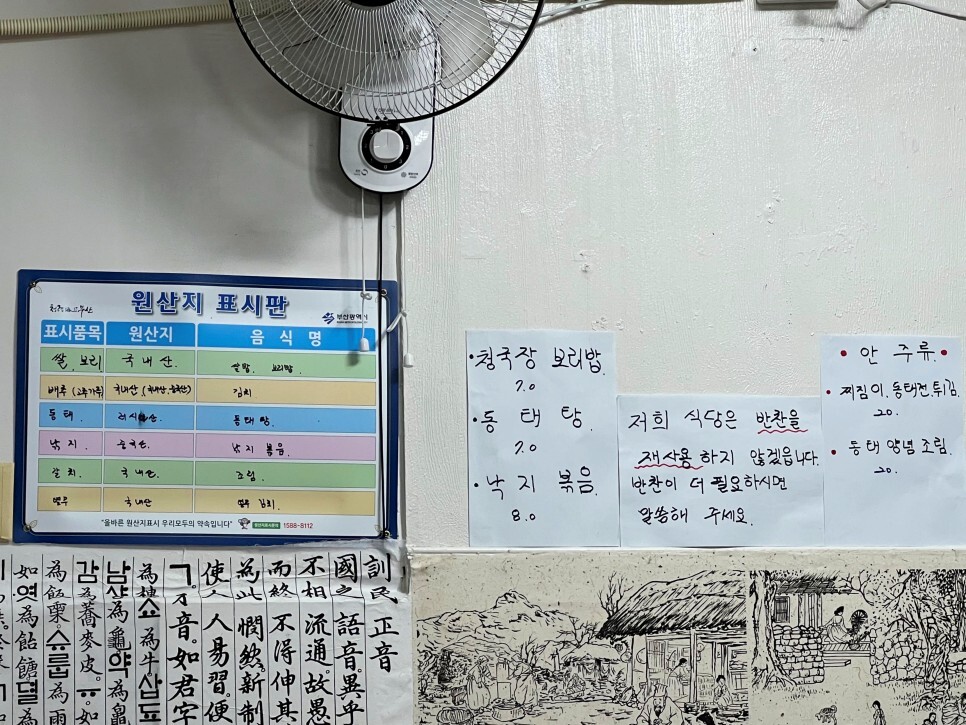 원산지 표시판
부산광역시
표시품목 원산지 음식명
쌀, 보리 국내산 쌀밥, 보리밥
배추(고추가루) 국내산(국내산, 중국산) 김치
동태 러시아산 동태탕
낙지 중국산 낙지 볶음
갈치 국내산 조림
열무 국내산 열무 김치
"올바른 원산지표시 우리모두의 약속입니다" 1588-8112
·청국장 보리밥
7.0
·동태탕
7.0
·낙지 볶음
8.0
저희 식당은 반찬을
재사용하지 않겠읍니다.
반찬이 더 필요하시면
말씀해 주세요.
안주류
찌짐이.동태전.튀김
20.
동태 양념 조림.
20.
訓民正音
國之語音。異乎
不相流通。故愚
而終不得伸其
為此憫然。新制
使人人易習。便
ㄱ。牙音。如君字
為棒쇼為牛삽됴
남샹為龜약為鼊
감為蕎麥皮。ㅠ。如
為飯粟。슈룹為雨
如엿為飴餹뎔為